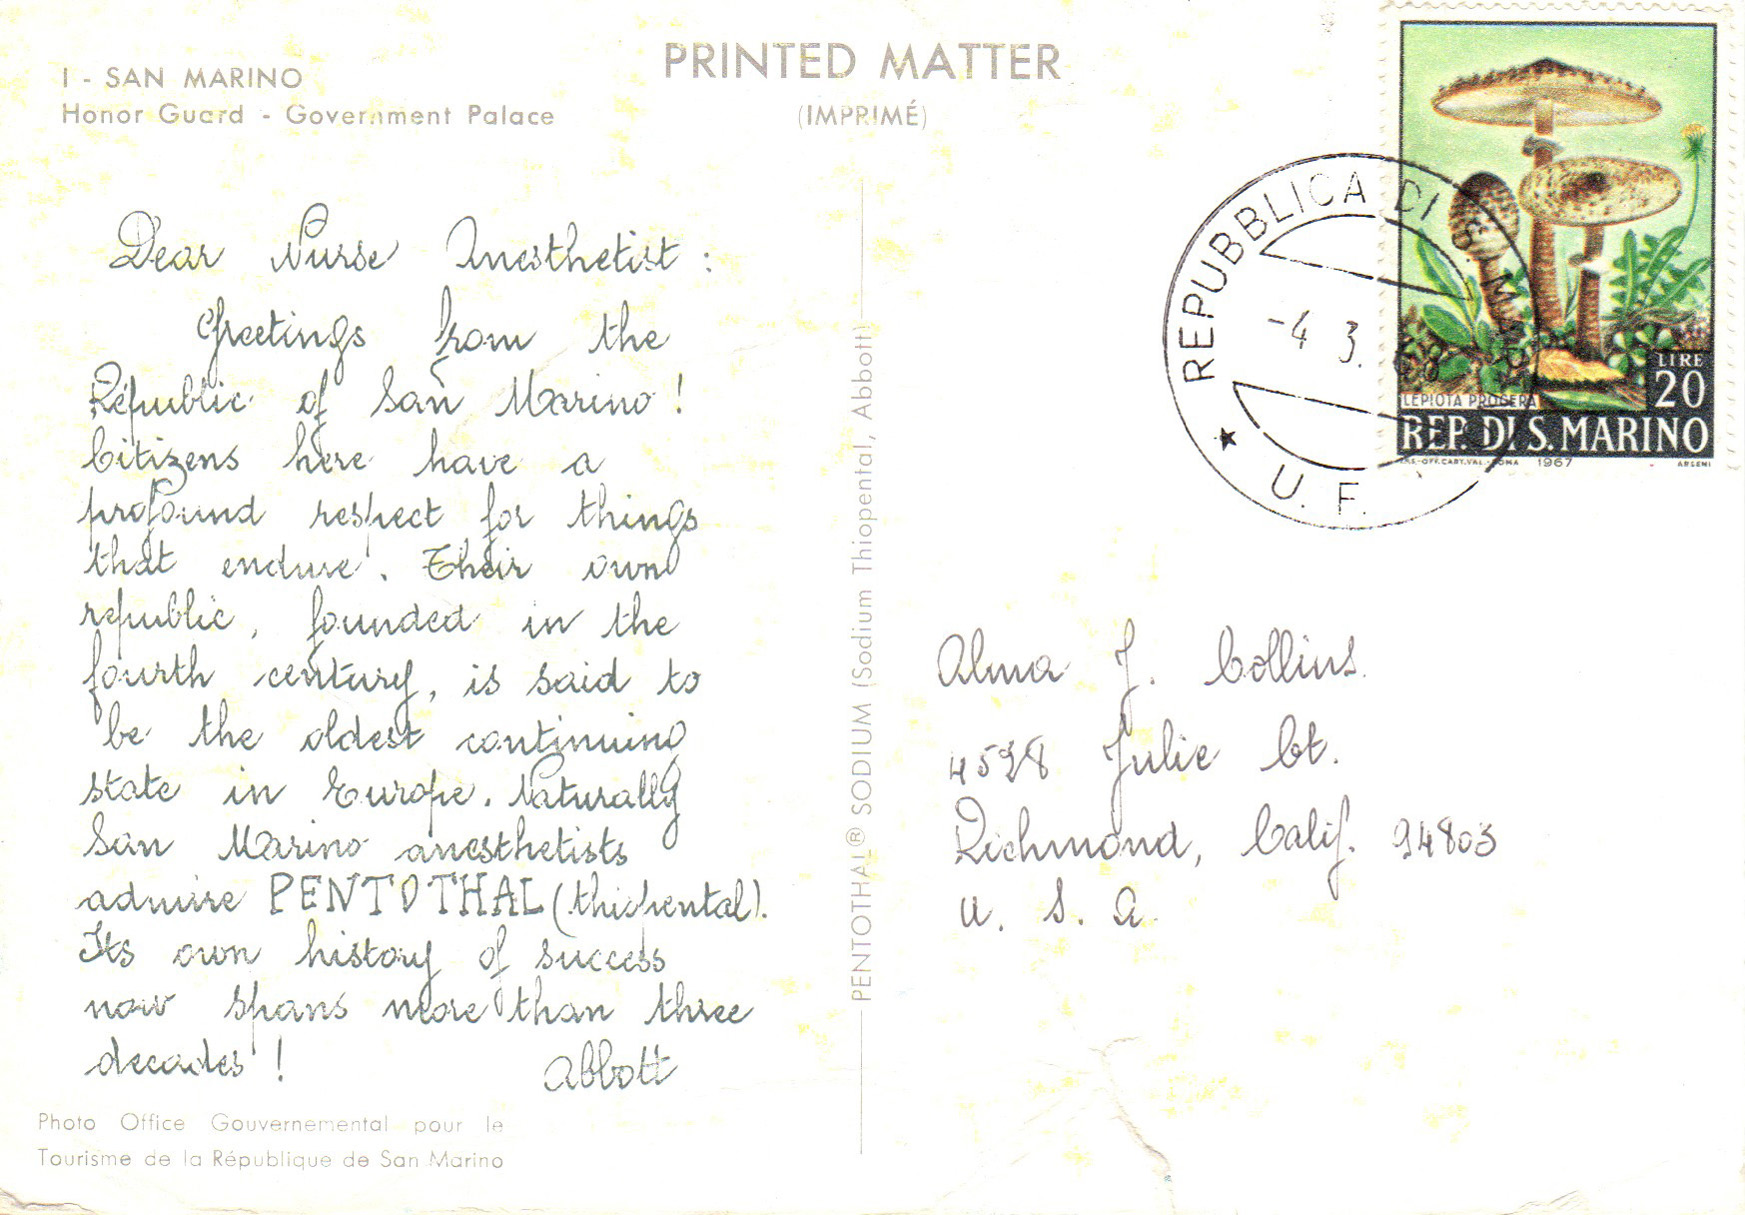 I - SAN MARINO
Honor Guard - Government Palace
PRINTED MATTER
(IMPRIMÉ)
Dear Nurse Anesthetist :
Greetings from the
Republic of San Marino !
Citizens here have a
profound respect for things
that endure. Their own
republic, founded in the
fourth century, is said to
be the oldest continuing
state in Europe. Naturally
San Marino anesthetists
admire PENTOTHAL (thiopental).
Its own history of success
now spans more than three
decades !
Abbott
Photo Office Gouvernemental pour le
Tourisme de la République de San Marino
PENTOTHAL® SODIUM (Sodium Thiopental, Abbott)
REPUBBLICA DI S. MARINO
-4 3. 68
★ U. F.
LEPIOTA PROCERA
LIRE
20
REP. DI S. MARINO
I.P.S.-OFF.CART.VAL.-ROMA 1967 ARSENI
Alma J. Collins
4528 Julie Ct.
Richmond, Calif. 94803
U. S. A.